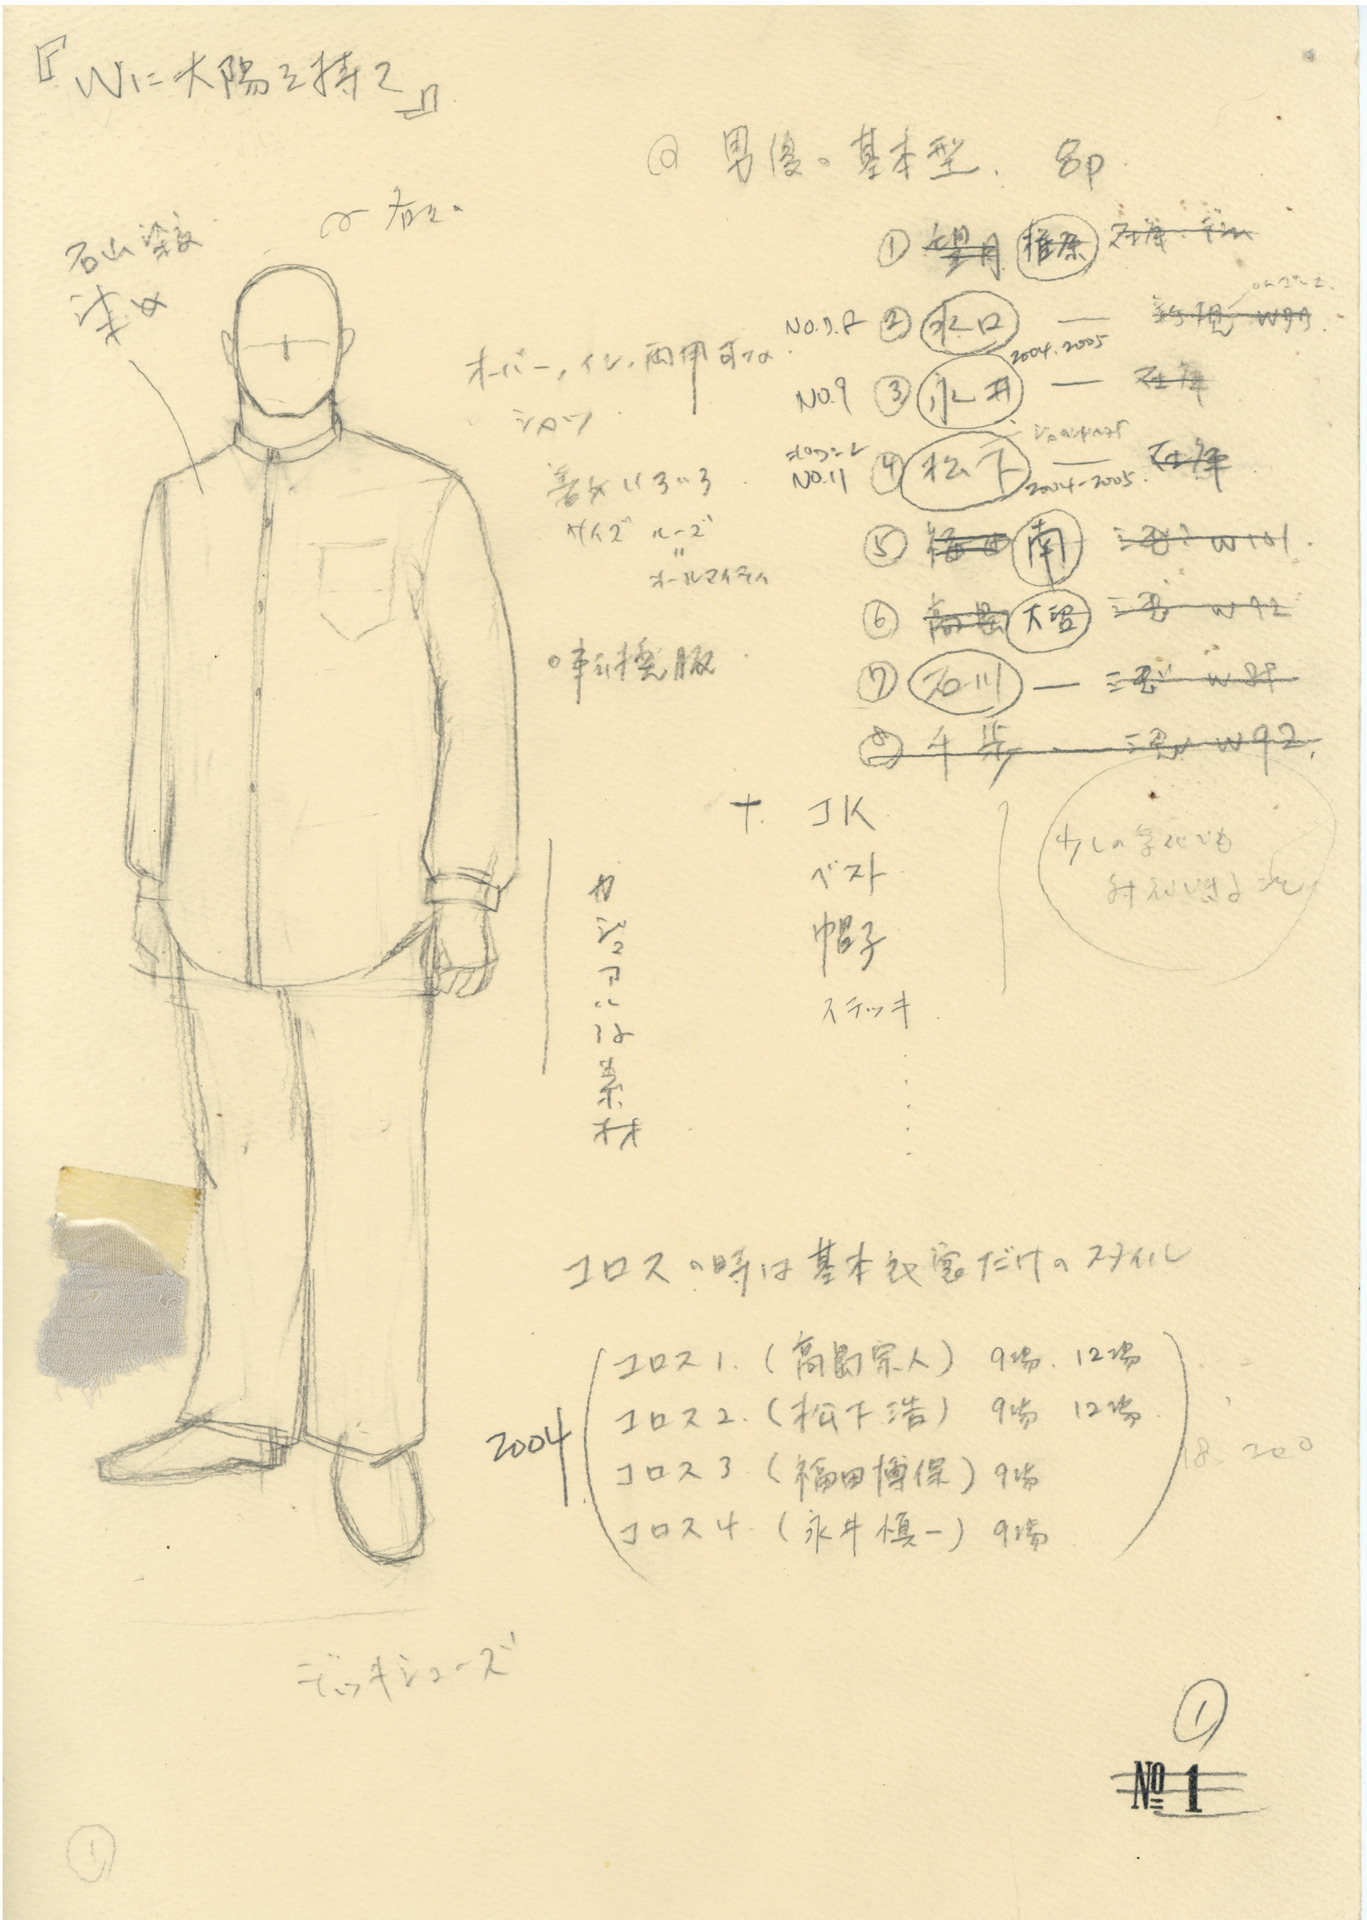 『Wに太陽を持て』
@ 男優の基本型. 8p
石山
染め
① 望月 椎原 在庫
NO.7.8 ② 水口 — 新規 W93
2004.2005
NO.9 ③ 永井 — 在庫
NO.11 ④ 松下 — 在庫
2004-2005.
⑤ 福田 南 W101.
⑥ 高島 大沼 W92
⑦ 石川 —
⑧ W92.
オーバー、イン、両用可な
シャツ
着方いろいろ
サイズ ルーズ
=
オールマイティ
+ JK
ベスト
帽子
ステッキ
カジュアルな素材
少しの
コロスの時は基本衣裳だけのスタイル
2004
コロス1. (高島宗人) 9場. 12場
コロス2. (松下浩) 9場 12場
コロス3 (福田博保) 9場
コロス4. (永井慎一) 9場
18. 200
デッキシューズ
①
№ 1
①